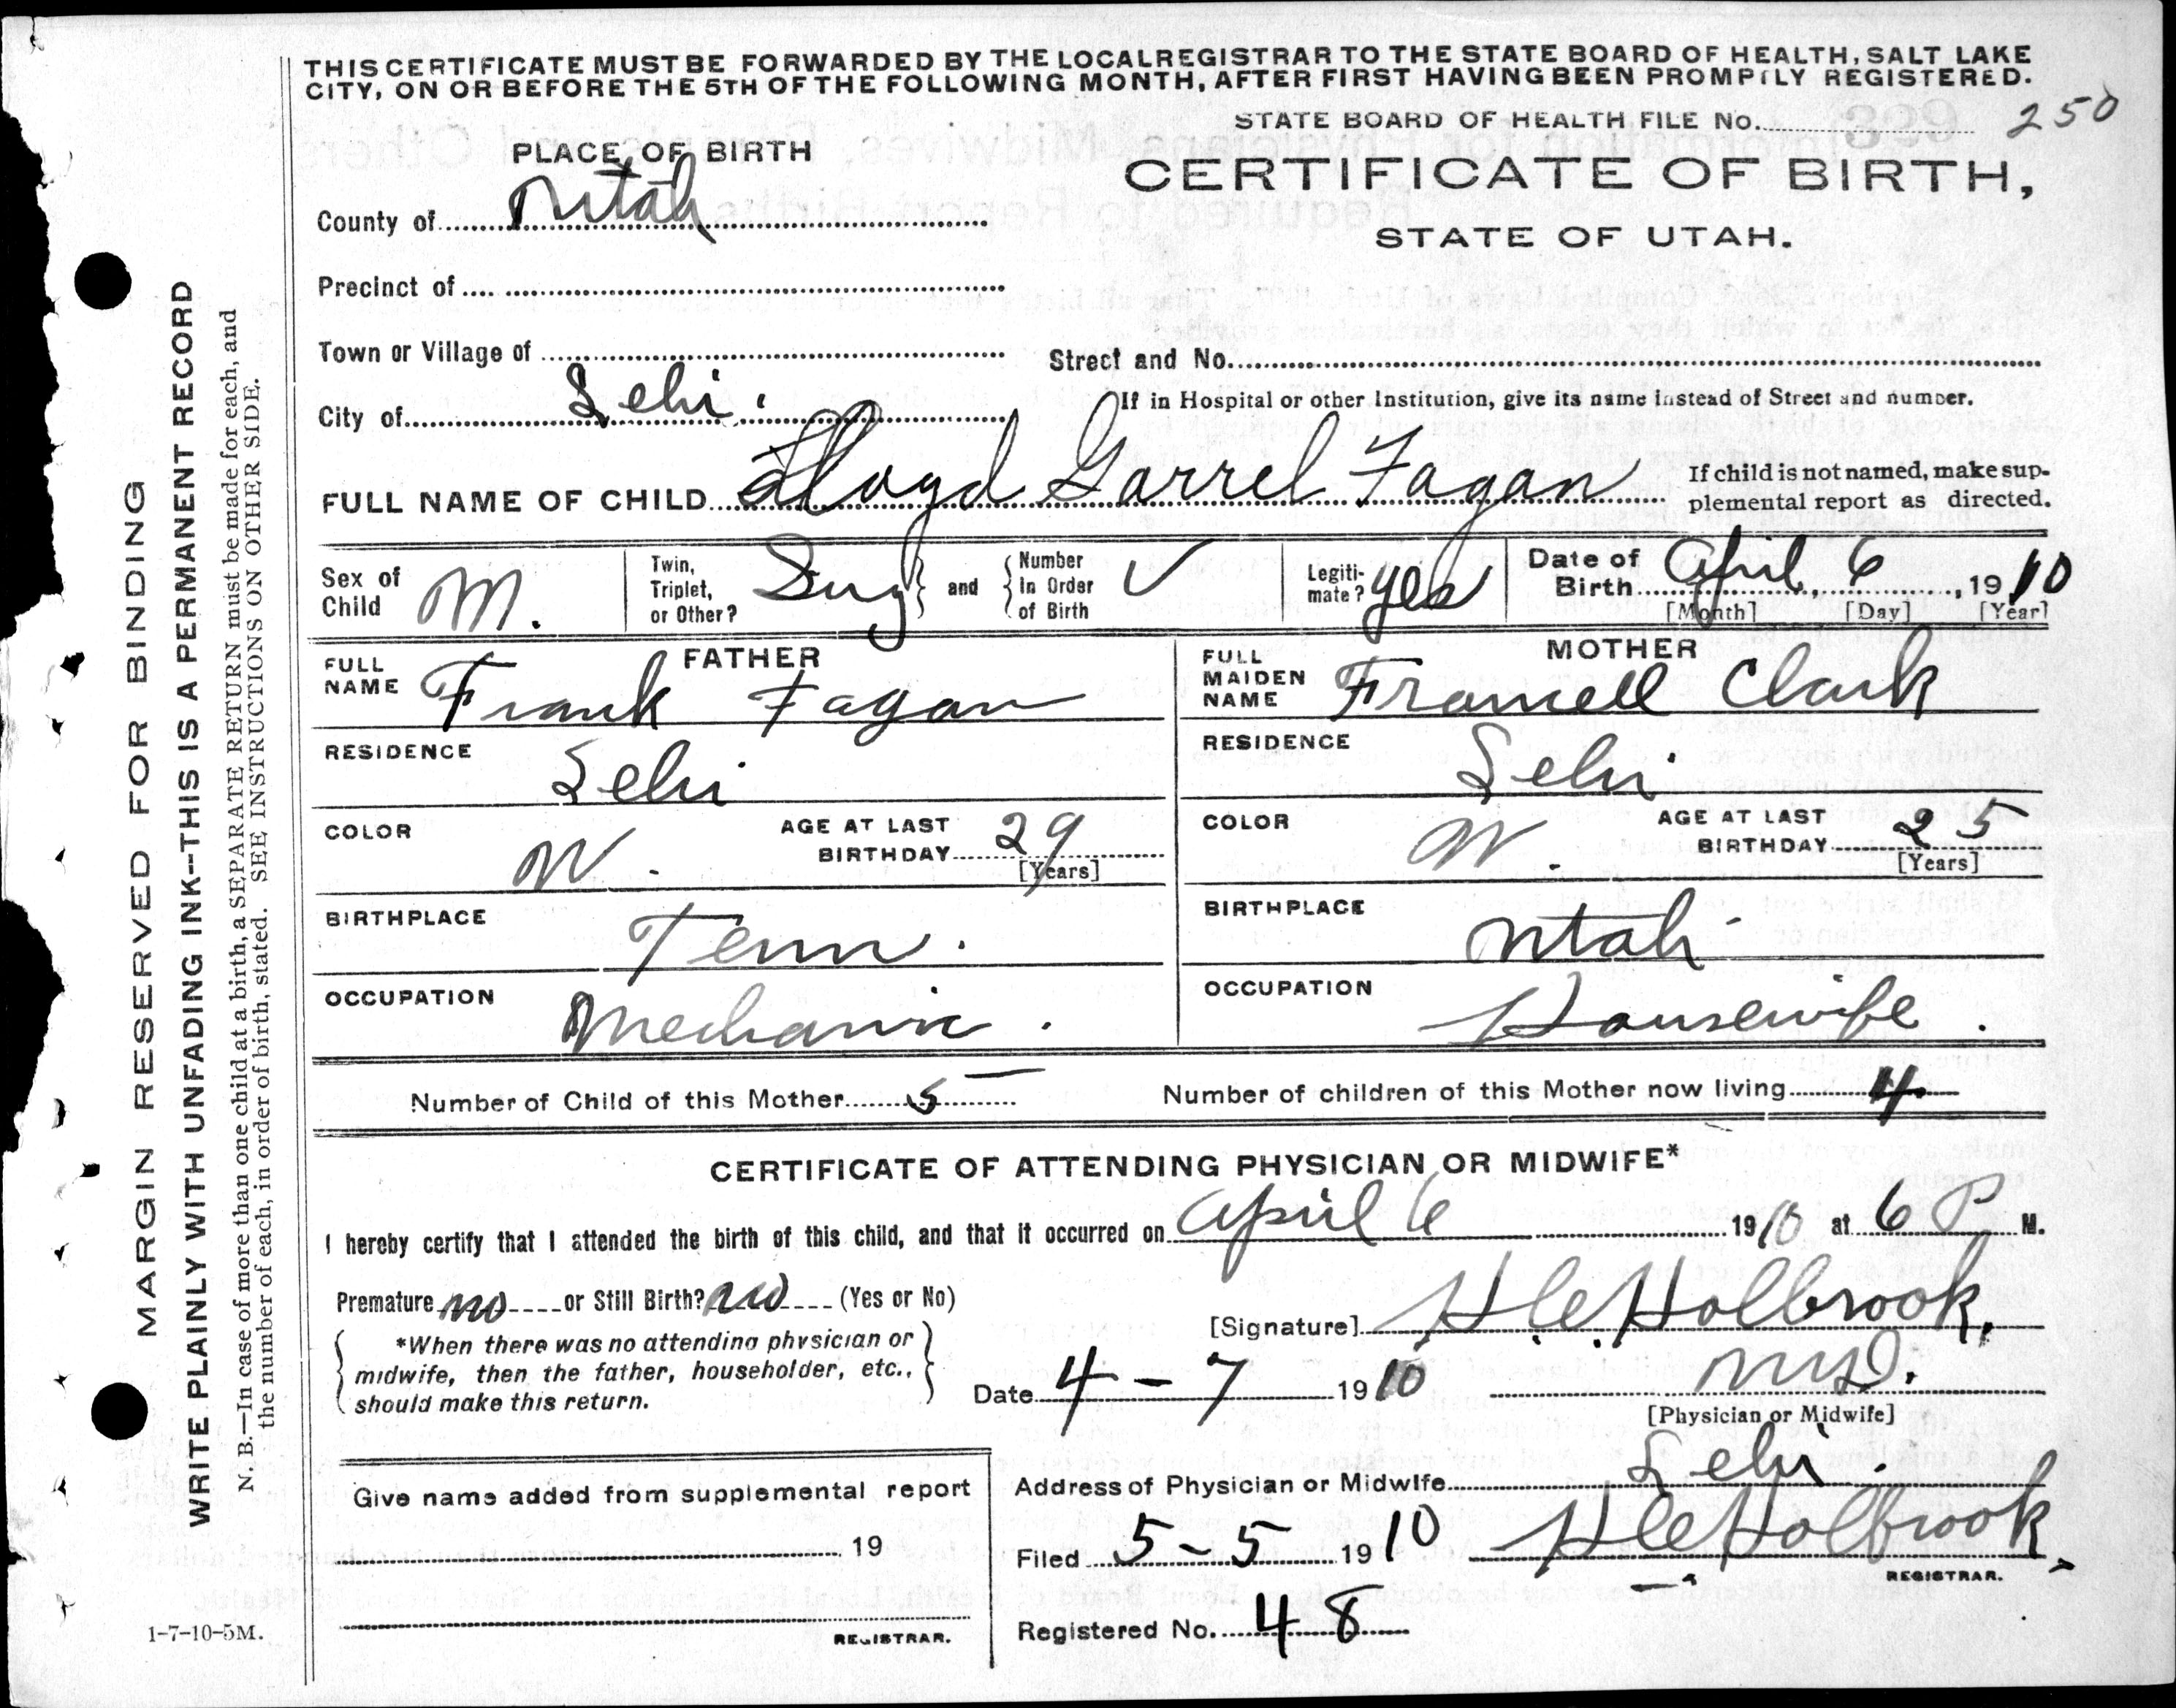 THIS CERTIFICATE MUST BE FORWARDED BY THE LOCAL REGISTRAR TO THE STATE BOARD OF HEALTH, SALT LAKE
CITY, ON OR BEFORE THE 5TH OF THE FOLLOWING MONTH, AFTER FIRST HAVING BEEN PROMPTLY REGISTERED.
STATE BOARD OF HEALTH FILE No. 250
PLACE OF BIRTH
CERTIFICATE OF BIRTH,
STATE OF UTAH.
County of Utah
Precinct of
Town or Village of
Street and No.
City of Lehi.
If in Hospital or other Institution, give its name instead of Street and number.
FULL NAME OF CHILD Lloyd Garrel Fagan
If child is not named, make sup-
plemental report as directed.
Sex of Child M.
Twin, Triplet, or Other? Sing
and
Number in Order of Birth ✓
Legiti-mate? yes
Date of Birth April 6, 1910
[Month] [Day] [Year]
FATHER
FULL NAME Frank Fagan
RESIDENCE Lehi
COLOR W.
AGE AT LAST BIRTHDAY 29
[Years]
BIRTHPLACE Tenn.
OCCUPATION Mechanic.
MOTHER
FULL MAIDEN NAME Clark
RESIDENCE Lehi
COLOR W.
AGE AT LAST BIRTHDAY 25
[Years]
BIRTHPLACE Utah
OCCUPATION Housewife.
Number of Child of this Mother 5
Number of children of this Mother now living 4
CERTIFICATE OF ATTENDING PHYSICIAN OR MIDWIFE*
I hereby certify that I attended the birth of this child, and that it occurred on April 6 1910 at 6 P M.
Premature no or Still Birth? no (Yes or No)
*When there was no attending physician or
midwife, then the father, householder, etc.,
should make this return.
[Signature] Holbrook,
M.D.
[Physician or Midwife]
Date 4-7 1910
Address of Physician or Midwife Lehi.
Filed 5-5 1910 Holbrook.
REGISTRAR.
Registered No. 48
Give name added from supplemental report
19
REGISTRAR.
1-7-10-5M.
MARGIN RESERVED FOR BINDING
WRITE PLAINLY WITH UNFADING INK--THIS IS A PERMANENT RECORD
N. B.—In case of more than one child at a birth, a SEPARATE RETURN must be made for each, and
the number of each, in order of birth, stated. SEE INSTRUCTIONS ON OTHER SIDE.